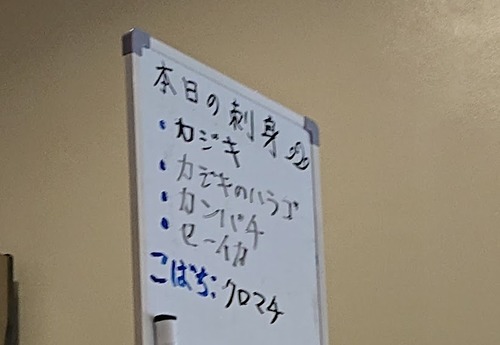 本日の刺身
・カジキ
・カジキのハラゴ
・カンパチ
・セーイカ
こばち:クロマチ